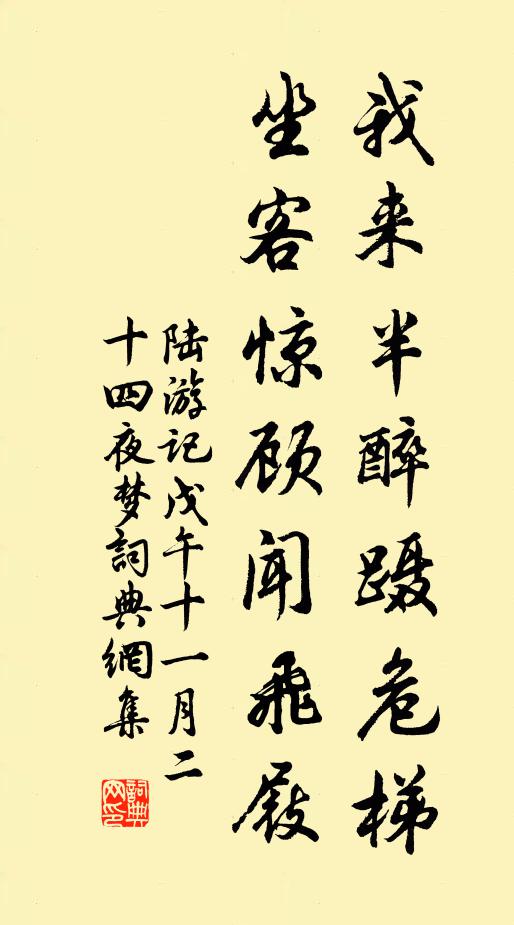 我来半醉蹑危梯
坐客惊顾闻飛屐
陆游记戊午十一月二
十四夜梦詞典網集
詞典
网印